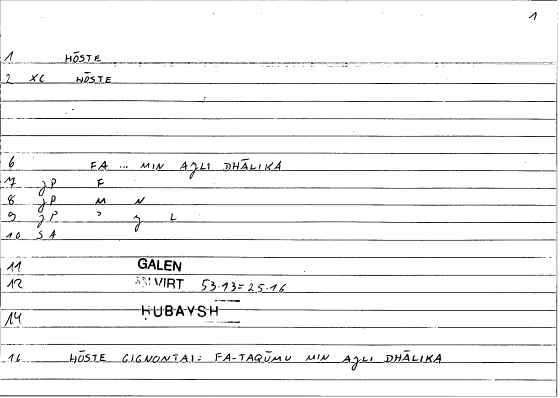 1
1 HŌSTE
2 XC HŌSTE
6 FA ... MIN AJLI DHĀLIKA
7 JP F
8 JP M N
9 JP ʾ J L
10 SA
11 GALEN
12 AN VIRT 53.13=25.16
14 HUBAYSH
16 HŌSTE GIGNONTAI: FA-TAQŪMU MIN AJLI DHĀLIKA